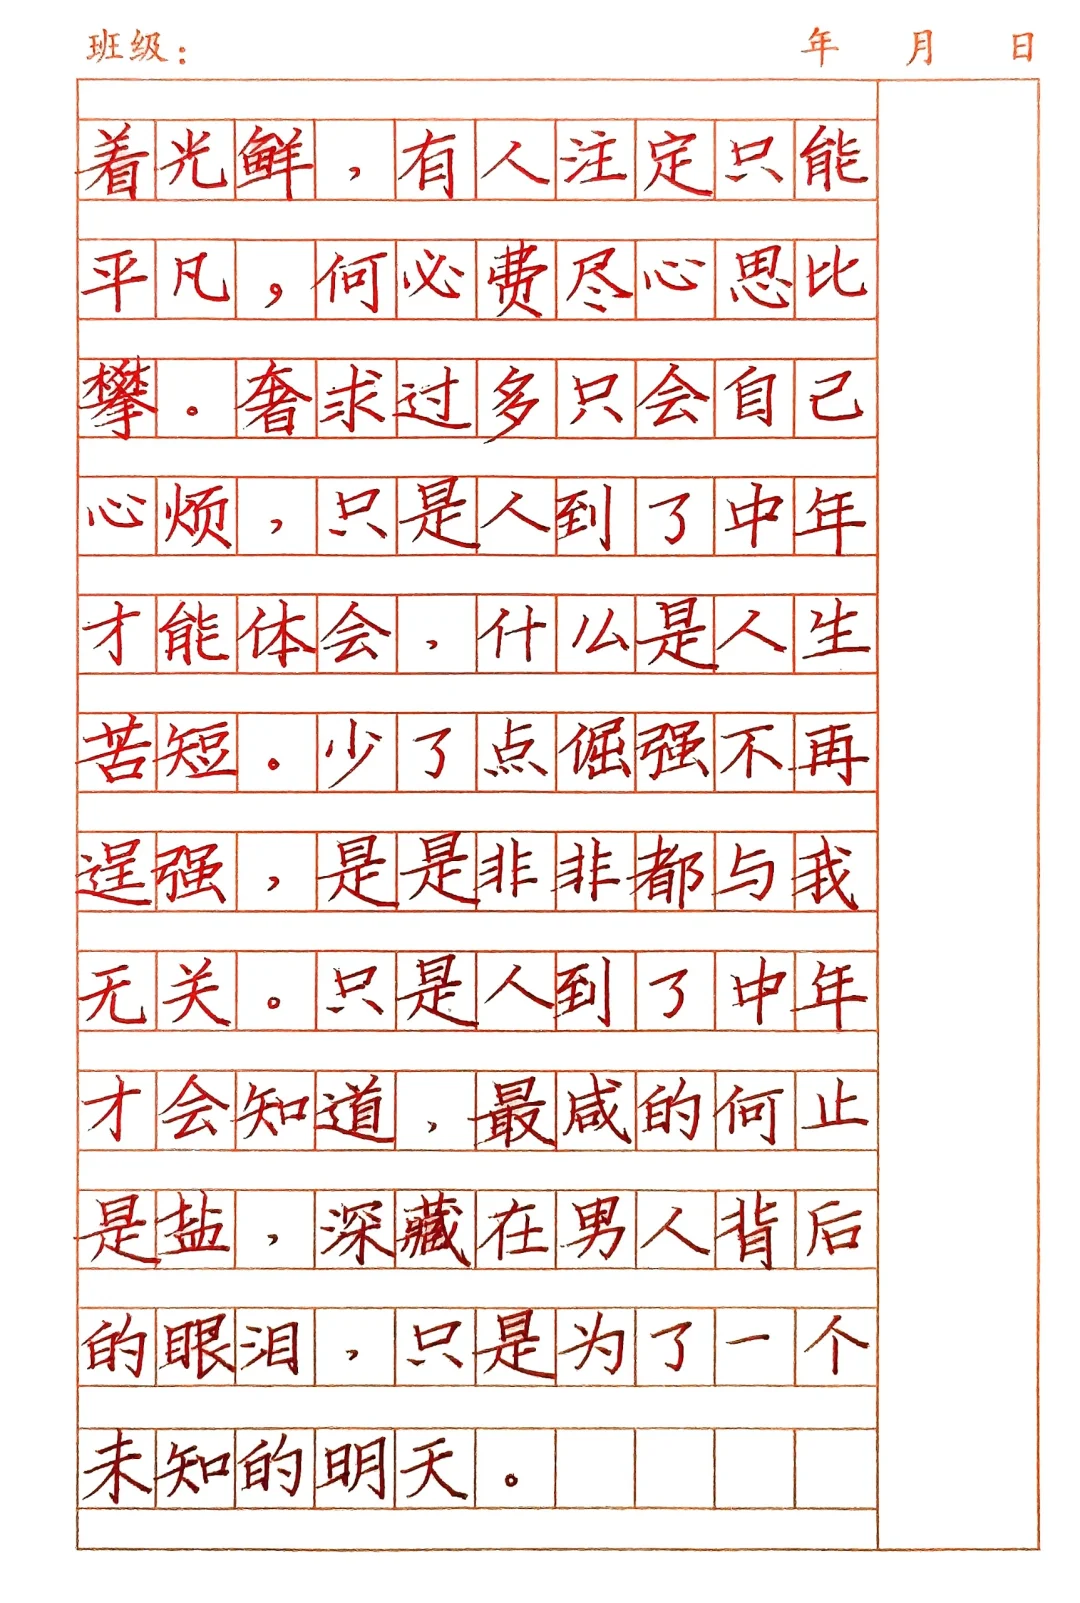 班级： 年 月 日
着光鲜，有人注定只能
平凡，何必费尽心思比
攀。奢求过多只会自己
心烦，只是人到了中年
才能体会，什么是人生
苦短。少了点倔强不再
逞强，是是非非都与我
无关。只是人到了中年
才会知道，最咸的何止
是盐，深藏在男人背后
的眼泪，只是为了一个
未知的明天。